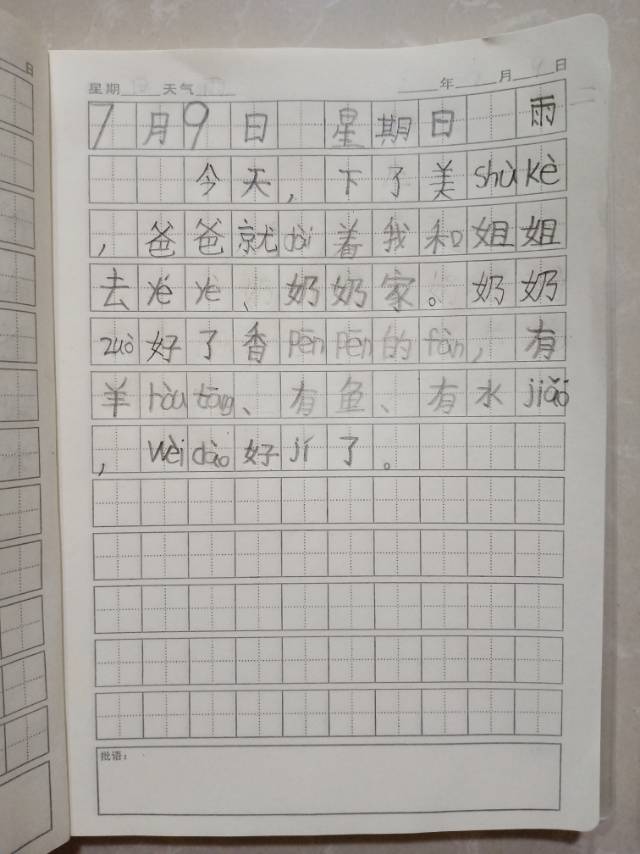 星期 天气 年 月 日
7月9日 星期日 雨
今天，下了美shùkè
，爸爸就dài着我和姐姐
去yéye、奶奶家。奶奶
zuò好了香pēnpēn的fàn，有
羊ròutāng、有鱼、有水jiǎo
，wèidào好jí了。
批语：
日